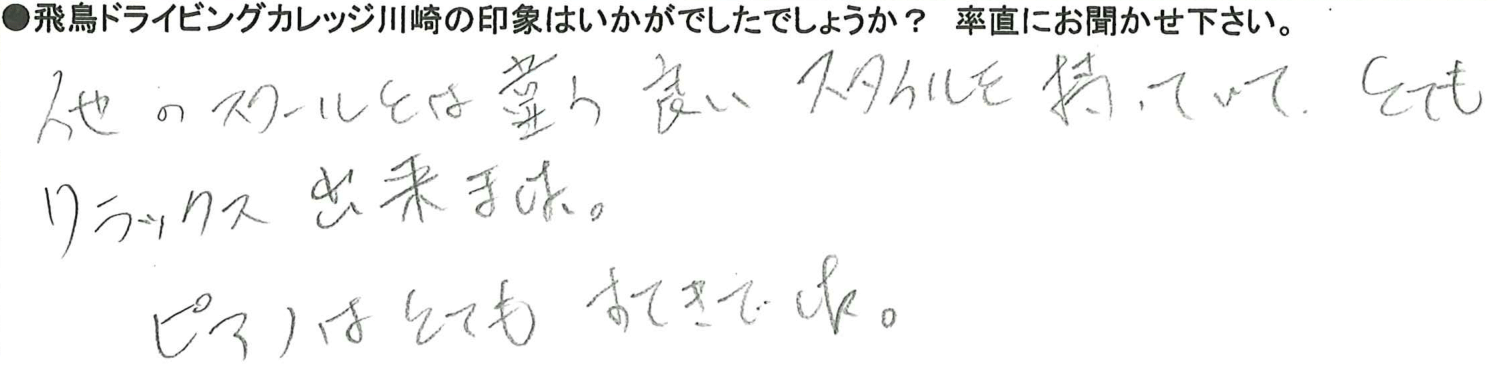 ●飛鳥ドライビングカレッジ川崎の印象はいかがでしたでしょうか？ 率直にお聞かせ下さい。
他のスクールとは違う良いスタイルを持っていて、とても
リラックス出来ました。
ピアノはとてもすてきでした。